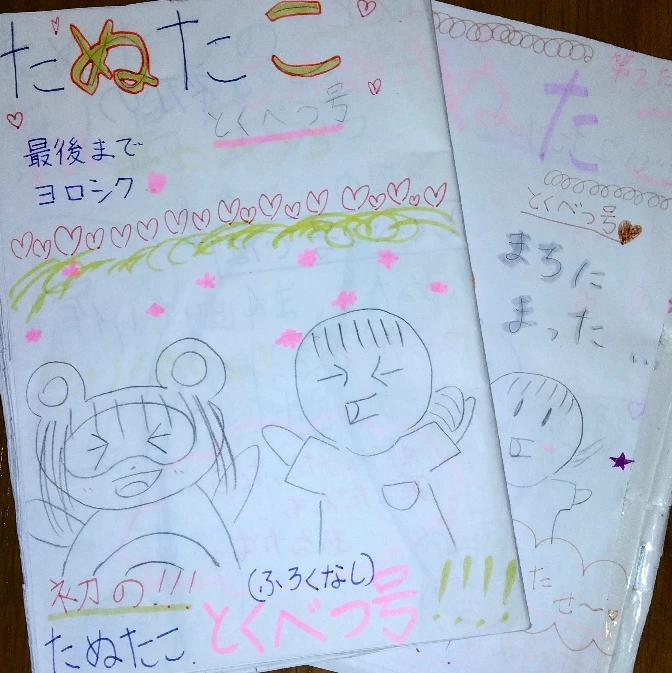 たぬたこ
とくべつ号
最後まで
ヨロシク
初の!!!
(ふろくなし)
たぬたこ.
とくべつ号!!!!
た
とくべつ号
まちに
まった...
た
せ〜